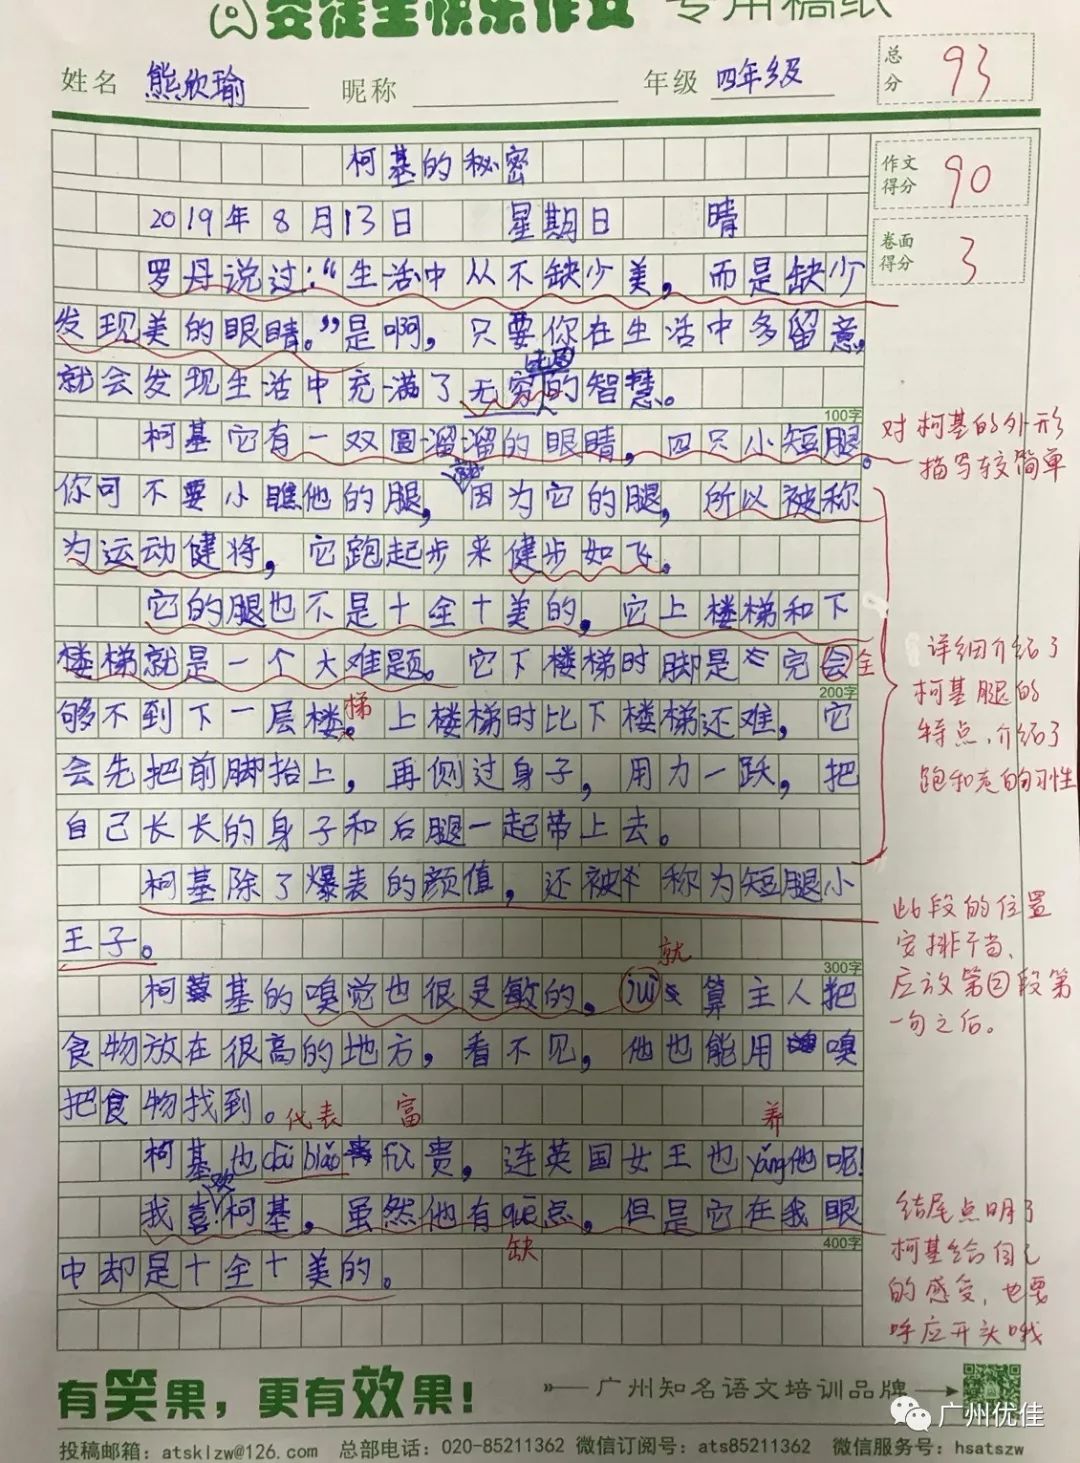 安徒生快乐作文 专用稿纸
姓名 熊欣瑜 昵称 年级 四年级
总分 93
作文得分 90
卷面得分 3
柯基的秘密
2019年8月13日 星期日 晴
罗丹说过:“生活中从不缺少美，而是缺少
发现美的眼睛。”是啊，只要你在生活中多留意，
就会发现生活中充满了无穷的智慧。
100字
柯基它有一双圆溜溜的眼睛，四只小短腿。
对柯基的外形
描写较简单
你可不要小瞧他的腿，因为它的腿，所以被称
为运动健将，它跑起步来健步如飞。
它的腿也不是十全十美的，它上楼梯和下
楼梯就是一个大难题。它下楼梯时脚是完会全
200字
够不到下一层楼梯。上楼梯时比下楼梯还难，它
会先把前脚抬上，再侧过身子，用力一跃，把
自己长长的身子和后腿一起带上去。
详细介绍了
柯基腿的
特点，介绍了
跑和走的习性
柯基除了爆表的颜值，还被称为短腿小
王子。
此段的位置
安排不当，
应放第②段第
一句之后。
300字
就
柯基的嗅觉也很灵敏的。jiù算主人把
食物放在很高的地方，看不见，他也能用嗅
把食物找到。
代表 富 养
柯基也dài biǎo欣贵，连英国女王也yǎng他呢！
我喜欢柯基，虽然他有quē点，但是它在我眼
缺
400字
中却是十全十美的。
结尾点明了
柯基给自己
的感受，也要
呼应开头哦
有笑果，更有效果！
广州知名语文培训品牌
广州优佳
投稿邮箱：atsklzw@126.com 总部电话：020-85211362 微信订阅号：ats85211362 微信服务号：hsatszw